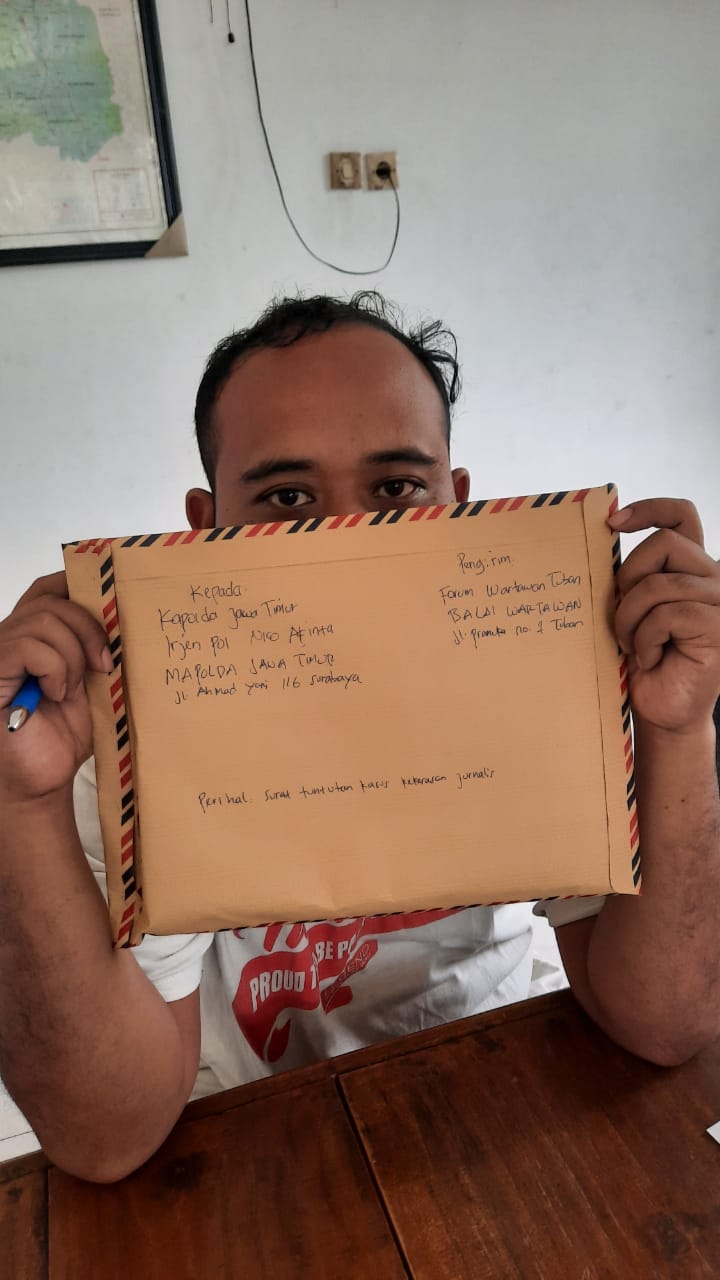 Kepada
Kapolda Jawa Timur
Irjen Pol Nico Afinta
MAPOLDA JAWA TIMUR
Jl. Ahmad Yani 116 Surabaya
Pengirim
Forum Wartawan Tuban
BALAI WARTAWAN
Jl. Pramuka no. 1 Tuban
Perihal. Surat tuntutan kasus kekerasan jurnalis
BE
PROUD